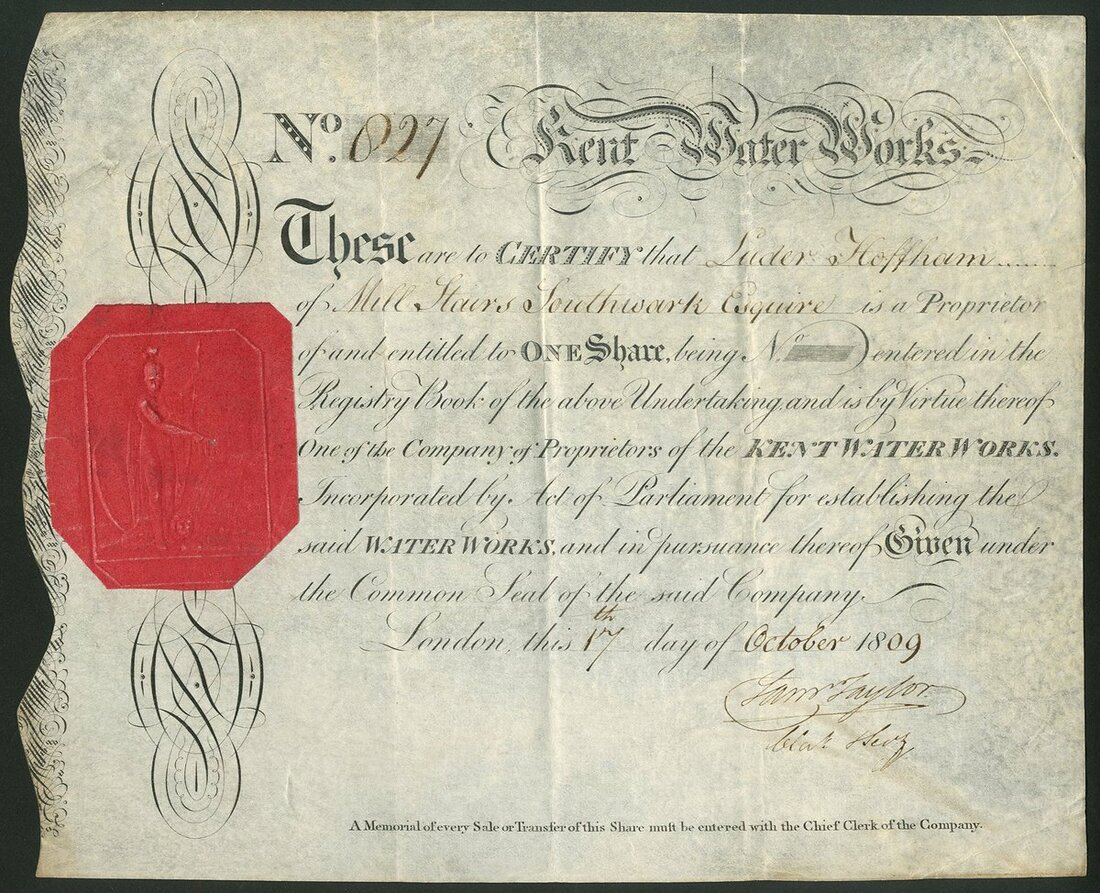 No. 827 Kent Water Works
These are to CERTIFY that Luder Hoffham
of Mill Stairs Southwark Esquire is a Proprietor
of and entitled to ONE Share, being No. entered in the
Registry Book of the above Undertaking, and is by Virtue thereof
One of the Company of Proprietors of the KENT WATER WORKS.
Incorporated by Act of Parliament for establishing the
said WATER WORKS, and in pursuance thereof Given under
the Common Seal of the said Company
London, this 17th day of October 1809
Taylor
A Memorial of every Sale or Transfer of this Share muſt be entered with the Chief Clerk of the Company.